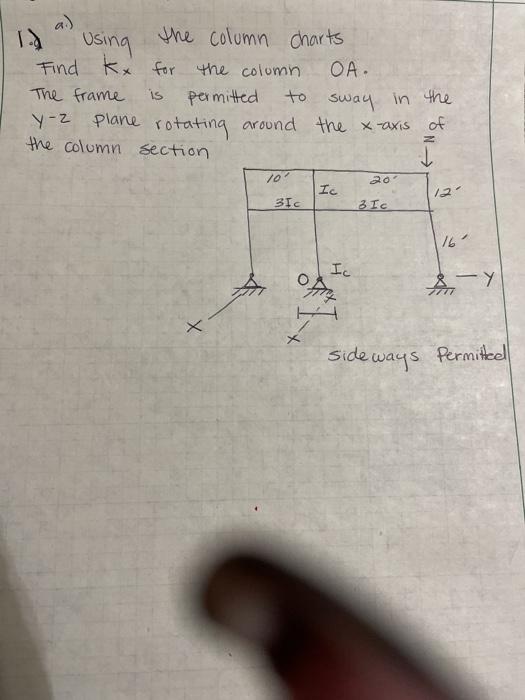 1.) a.) Using the column charts
Find Kx for the column OA.
The frame is permitted to sway in the
y-z plane rotating around the x-axis of
the column section
z
10' Ic 20' 12'
3Ic 3Ic
16'
O Ic
Y
X
X
Sideways Permitted